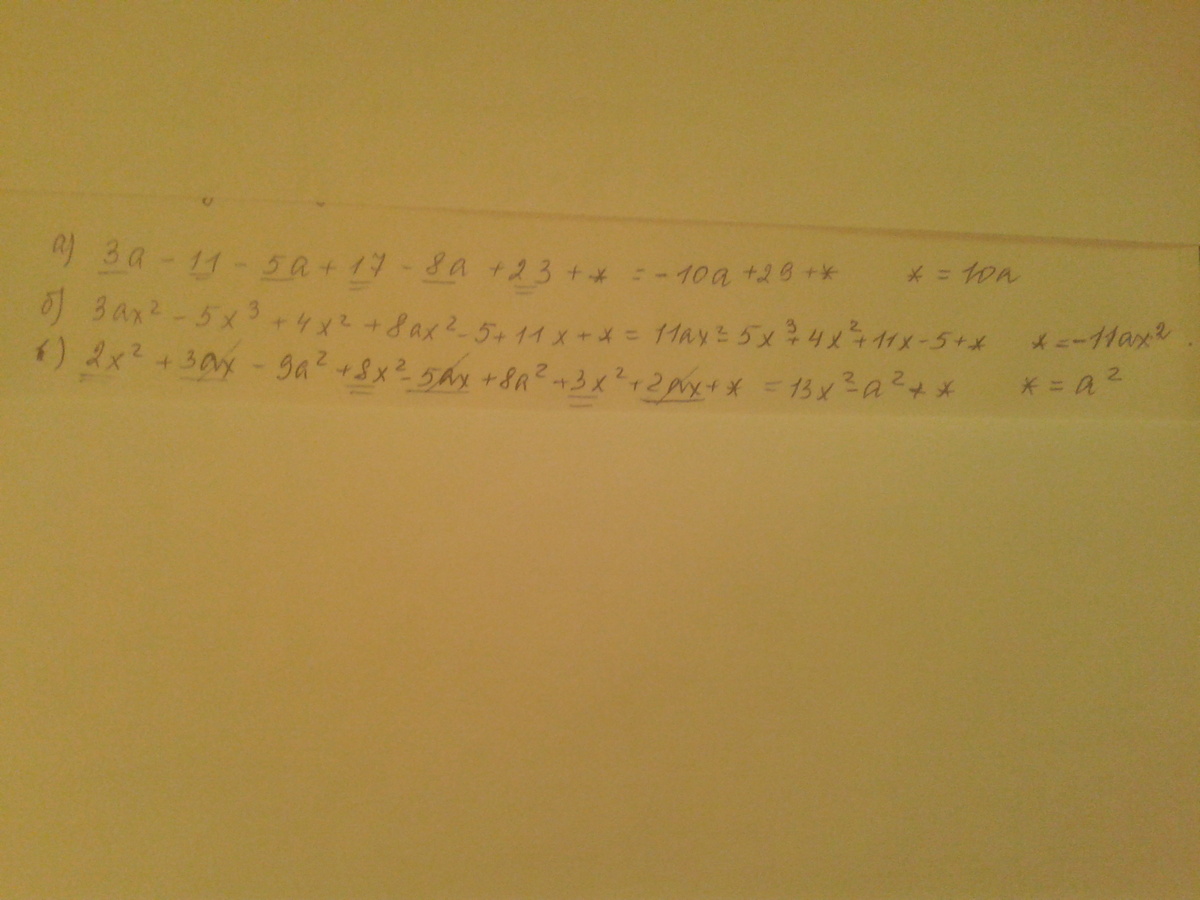 а) 3a - 11 - 5a + 17 - 8a + 23 + * = -10a + 29 + * * = 10a
б) 3ax² - 5x³ + 4x² + 8ax² - 5 + 11x + * = 11ax² - 5x³ + 4x² + 11x - 5 + * * = -11ax²
в) 2x² + 3ax - 9a² + 8x² - 5ax + 8a² + 3x² + 2ax + * = 13x² - a² + * * = a²